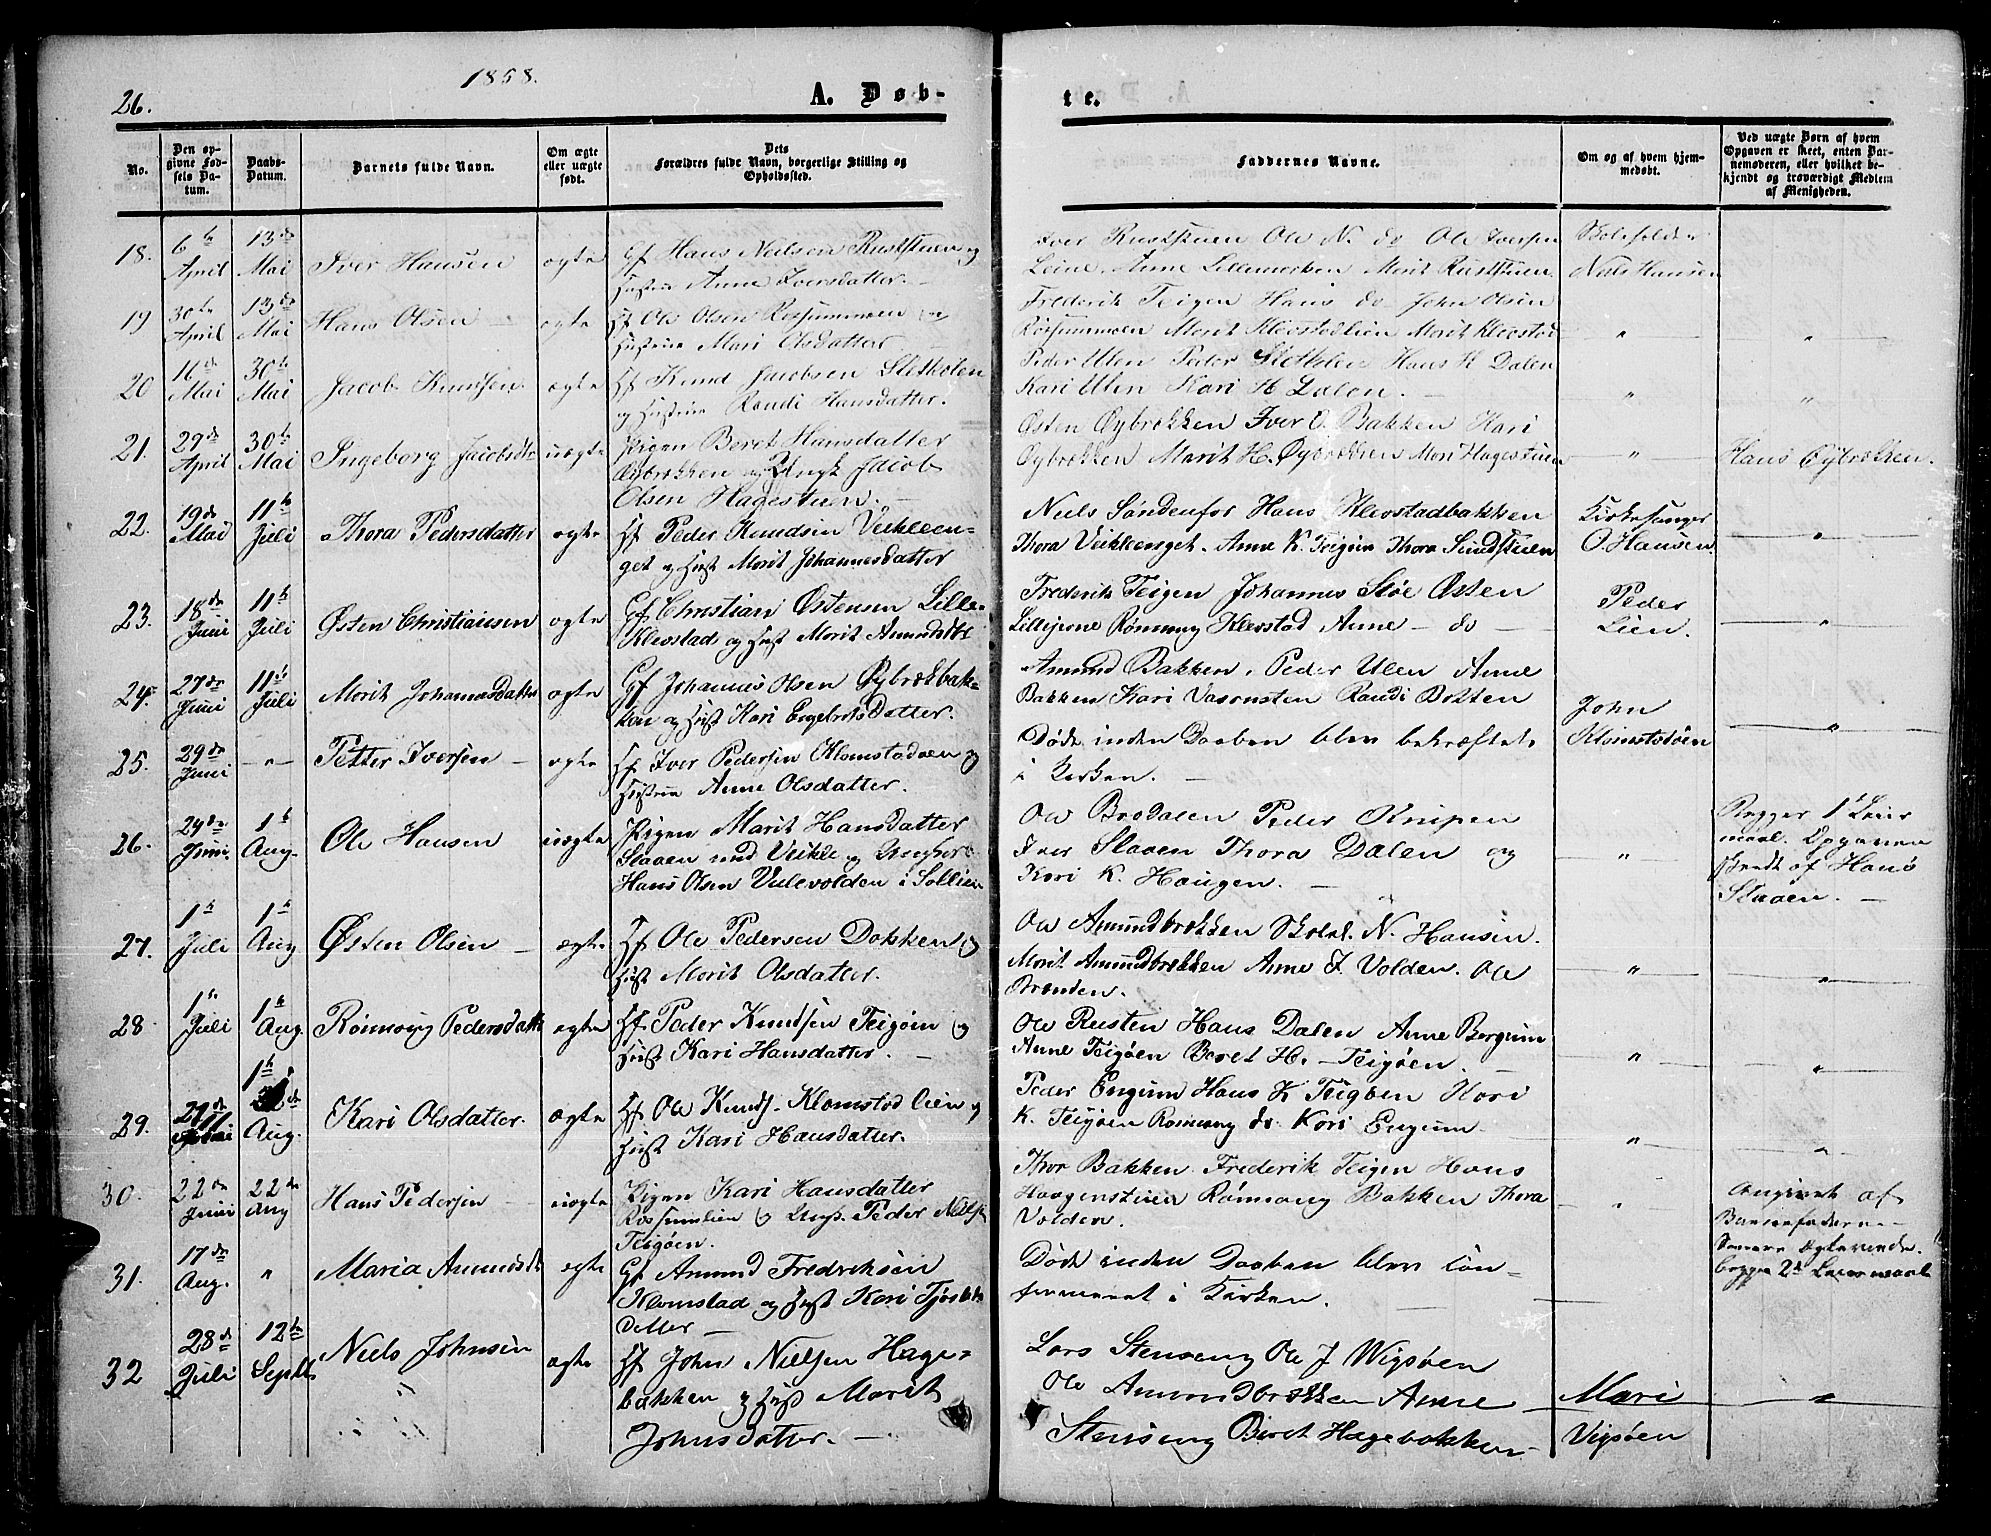 26.
1858.
A. Døb-
te.
No.
Den op-
givne Fød-
sels Da-
tum.
Daabs-
Datum.
Barnets fulde Navn.
Om ægte
eller uægte
født.
Dets
Forældres fulde Navn, borgerlige Stilling og
Opholdssted.
Faddernes Navne.
Om og af hvem hjem-
medøbt.
Ved uægte Børn af hvem
Opgaven er skeet, enten Bar-
nemoderen, eller hvilket be-
kjendt og troværdigt Medlem
af Menigheden.
18.
6te
April
13de
Mai
Iver Hansen
ægte
Gf Hans Neilsen Ruststuen og
Hustrue Anne Iversdatter.
Iver Ruststuen Ole N. do Ole Iversen
Leine. Anne Lillemorken Marit Ruststuen
Skoleholder
Niels Hansen
19
30te
April
13de
Mai
Hans Olsen
ægte
Hf Ole Olsen og
Hustrue Mari Olsdatter
Frederik Teigen Hans do John Olsen
Marit Klevstadlien Marit Klevstad
"
"
20
16de
Mai
30te
Mai
Jacob Knudsen
ægte
Hf Knud Jacobsen Sletholen
og Hustrue Randi Hansdatter.
Peder Ulen Peder Sletholen Hans K Dalen
Kari Ulen Kari H Dalen.
"
"
21.
29de
April
30te
Mai
Ingeborg Jacobsdtr
uægte
Pigen Beret Hansdatter
Øybrækken og Ungk Jacob
Olsen Hagestuen.
Østen Øybrekken Iver O. Bakken Kari
Øybrækken Marit H. Øybrækken Mari Hagestuen
"
Hans Øybrækken.
22.
19de
Mai
11te
Juli
Thora Pedersdatter
ægte
Hf Peder Knudsen Veikleen-
get og Hust Marit Johannesdatter
Niels Søndenfor Hans Klevstadbakken
Thora Veikleenget. Anne K. Teigum Thora Sundstuen
Kirkesanger
O. Hansen
"
23.
18de
Juni
11te
Juli
Østen Christiansen
ægte
Gf Christian Østensen Lille-
Klevstad og Hust Marit Amundsdtr
Frederik Teigen Johannes Støe Østen
Lillijorne Rønnaug Klevstad Anne - do -
Peder
Lien.
"
24.
27de
Juni
11te
Juli
Marit Johannesdatter
ægte
Gf Johannes Olsen Øybrækbak-
ken og Hust Kari Engebretsdatter.
Amund Bakken. Peder Ulen Anne
Bakken Kari Vasensten Randi Botten
John
Klomstadøen
"
25.
29de
Juni
"
Petter Iversen
ægte
Hf Iver Pedersen Klomstadøen og
Hustrue Anne Olsdatter.
Døde inden Daaben blev bekræftet
i Kirken.
26.
24de
Juni.
1te
Aug.
Ole Hansen
uægte
Pigen Marit Hansdatter
Slaaen und Veikle og Ungkarl
Hans Olsen Vulevolden i Sollien
Ole Brodalen Peder Knipen
Iver Slaaen Thora Dalen og
Kari K. Haugen.
"
Begges 1te Leier
maal. Opgaven
skeedt af Hans
Slaaen.
27.
1te
Juli
1te
Aug
Østen Olsen
ægte
Hf Ole Pedersen Dokken og
Hust Marit Olsdatter.
Ole Amundbrækken Skoleh. N. Hansen.
Marit Amundbrækken Anne J. Volden. Ole
Brænden.
"
"
28
1te
Juli
1te
Aug.
Rønnaug Pedersdatter
ægte
Hf Peder Knudsen Teigøen og
Hust Kari Hansdatter.
Ole Rusten Hans Dalen Anne Borgum
Anne Teigøen Beret H. Teigøen.
"
"
29.
1te
Aug.
Kari Olsdatter.
ægte
Hf Ole Knuds. Klomstadlien og
Hust Kari Hansdatter.
Peder Engum Hans K Teigøen Kari
K. Teigøen Rønnaug do Kari Engum
"
"
30.
22de
Juni
22de
Aug
Hans Pedersen
uægte
Pigen Kari Hansdatter
og Ungk. Peder Niels.
Teigøen.
Thor Bakken. Frederik Teigen Hans
Haagenstuen Rønnaug Bakken Thora
Volden.
"
Angivet af
Barnefaderen
begges 2de Leiermaal
31.
17de
Aug.
"
Maria Amundsdtr
ægte
Gf Amund Fredriksen
Klomstad og Hust Kari
datter
Døde inden Daaben blev con-
firmeret i Kirken.
32
28de
Juli
12te
Septb.
Niels Johnsen
ægte
Hf John Nielsen Hage-
bakken og Hust Marit
Johnsdatter.
Lars Stenseng Ole J Wigsøen
Ole Amundbrækken Anne
Stenseng Beret Hagebakken
Mari
Vigsøen
"